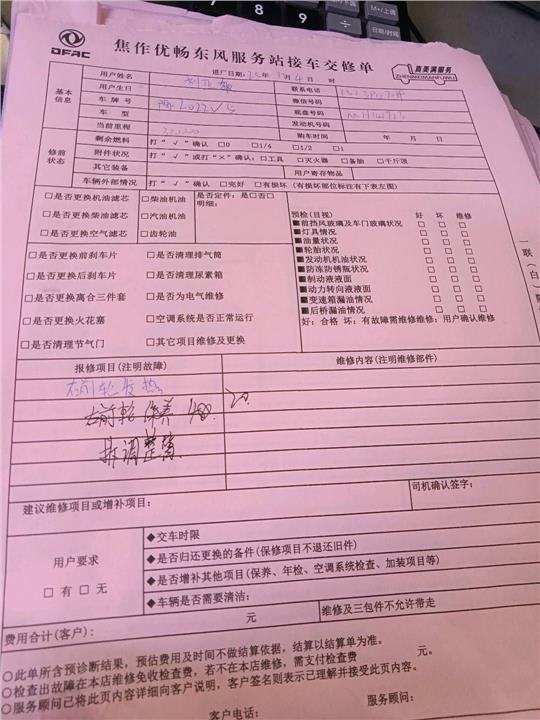 7 8 9 M+/上调
日期/时间
DFAC
焦作优畅东风服务站接车交修单
真美满服务
ZHENMEIMANFUWU
基本信息
用户姓名 进厂日期: 年 月 4 日 时
用户生日 联系电话
车牌号 微信号码
车型 底盘号码
当前里程 发动机号
购车时间 年 月 日
修前状态
剩余燃料 打“√”确认 □0 □1/4 □1/2 □1
附件状况 打“√”或打“×”确认:□工具 □灭火器 □备胎 □千斤顶
其它装备 用户寄存物品
车辆外部情况 打“√”确认 □完好 □有损坏(有损坏部位标注有下表左图)
□是否更换机油滤芯 □柴油机油 是否定件:是□否□
□是否更换柴油滤芯 □汽油机油 明细:
□是否更换空气滤芯 □齿轮油
预检(目视) 好 坏 维修
■前挡风玻璃及车门玻璃状况 □ □ □
■灯具情况 □ □ □
■油量状况 □ □ □
■轮胎状况 □ □ □
■发动机机油状况 □ □ □
■防冻防锈瓶状况 □ □ □
■制动液液面 □ □ □
■动力转向液液面 □ □ □
■变速箱漏油情况 □ □ □
■后桥漏油情况 □ □ □
好:合格 坏:有故障需维修维修:用户确认维修
□是否更换前刹车片 □是否清理排气筒
□是否更换后刹车片 □是否清理尿素箱
□是否更换离合三件套 □是否为电气维修
□是否更换火花塞 □空调系统是否正常运行
□是否清理节气门 □其它项目维修及更换
一联(白)
报修项目(注明故障) 维修内容(注明维修部件)
右前轮发热
右前轮保养
拼调整臂
建议维修项目或增补项目: 司机确认签字:
用户要求
□有 □无
◆交车时限
◆是否归还更换的备件(保修项目不退还旧件)
◆是否增补其他项目(保养、年检、空调系统检查、加装项目等)
◆车辆是否需要清洁:
费用合计(客户): 元 维修及三包件不允许带走
○此单所含预诊断结果,预估费用及时间不做结算依据,结算以结算单为准。
○检查出故障在本店维修免收检查费,若不在本店维修,需支付检查费 元。
○服务顾问己将此页内容详细向客户说明,客户签名则表示已理解并接受此页内容。
客户电话: 服务顾问: